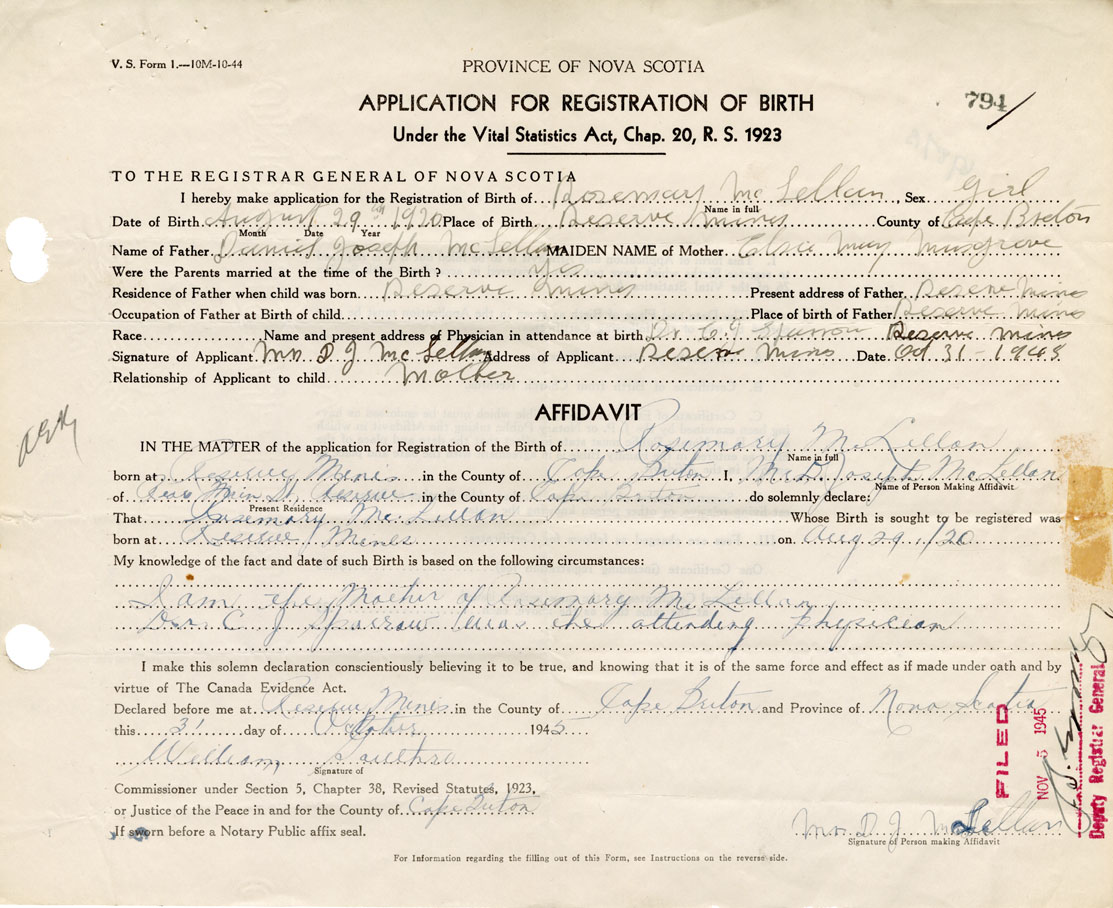 V. S. Form 1.—10M-10-44
PROVINCE OF NOVA SCOTIA
APPLICATION FOR REGISTRATION OF BIRTH
794
Under the Vital Statistics Act, Chap. 20, R. S. 1923
TO THE REGISTRAR GENERAL OF NOVA SCOTIA
I hereby make application for the Registration of Birth of Rosemary Mc Lellan, Sex Girl
Name in full
Date of Birth August 29th 1920 Place of Birth Reserve Mines, County of Cape Breton
Month Date Year
Name of Father Daniel Joseph McLellan MAIDEN NAME of Mother Elsie May Musgrove
Were the Parents married at the time of the Birth? Yes
Residence of Father when child was born Reserve Mines Present address of Father Reserve Mines
Occupation of Father at Birth of child Place of birth of Father Reserve Mines
Race Name and present address of Physician in attendance at birth Dr. C. J. Sparrow Reserve Mines
Signature of Applicant Mrs. D J McLellan Address of Applicant Reserve Mines Date Oct 31 - 1945
Relationship of Applicant to child Mother
AFFIDAVIT
IN THE MATTER of the application for Registration of the Birth of Rosemary McLellan
Name in full
born at Reserve Mines in the County of Cape Breton I, Mrs D. Joseph McLellan
Name of Person Making Affidavit
of Main St. Reserve in the County of Cape Breton do solemnly declare:
Present Residence
That Rosemary McLellan Whose Birth is sought to be registered was
born at Reserve Mines on Aug 29, /20
My knowledge of the fact and date of such Birth is based on the following circumstances:
I am the Mother of Rosemary McLellan
Dr. C J Sparrow was the attending Physician
I make this solemn declaration conscientiously believing it to be true, and knowing that it is of the same force and effect as if made under oath and by
virtue of The Canada Evidence Act.
Declared before me at Reserve Mines in the County of Cape Breton and Province of Nova Scotia
this 31 day of October 1945
William
Signature of
Commissioner under Section 5, Chapter 38, Revised Statutes, 1923,
or Justice of the Peace in and for the County of Cape Breton
If sworn before a Notary Public affix seal.
Mrs. D J McLellan
Signature of Person making Affidavit
For Information regarding the filling out of this Form, see Instructions on the reverse side.
FILED
NOV 5 1945
Deputy Registrar General